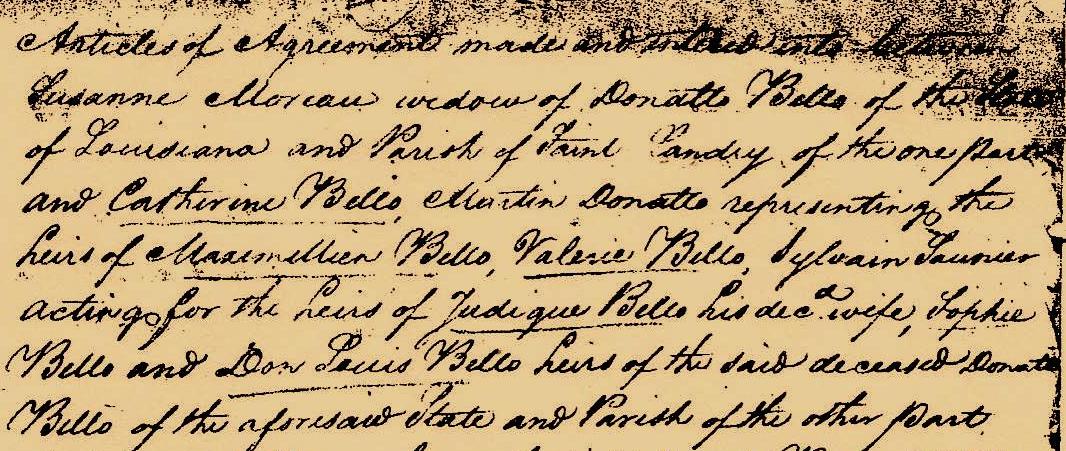 Articles of Agreement made and entered into between
Susanne Moreau widow of Donatto Bello of the State
of Louisiana and Parish of Saint Landry of the one part
and Catherine Bello, Martin Donatto representing the
heirs of Maximillien Bello, Valerie Bello, Sylvain Saunier
acting for the heirs of Judique Bello his decd wife, Sophie
Bello and Don Louis Bello heirs of the said deceased Donatto
Bello of the aforesaid State and Parish of the other part